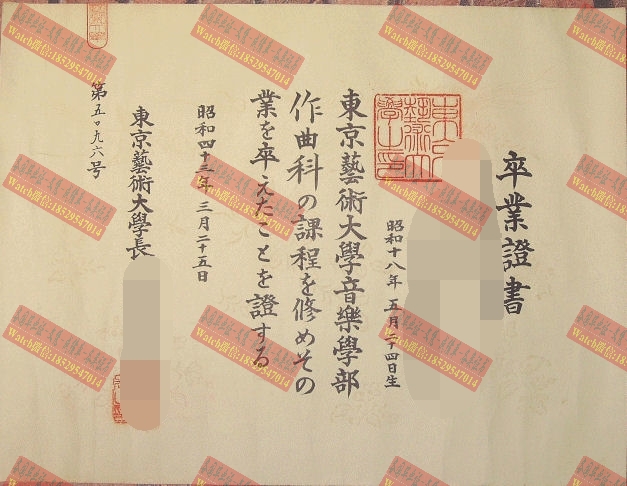 卒業證書
昭和十八年 五月二十四日生
東京藝術大學音樂學部
作曲科の課程を修めその
業を卒えたことを證する
昭和四十三年 三月二十五日
東京藝術大學長
第五〇九六号
Watch微信:18529547014
Watch微信:18529547014
Watch微信:18529547014
Watch微信:18529547014
Watch微信:18529547014
Watch微信:18529547014
Watch微信:18529547014
Watch微信:18529547014
Watch微信:18529547014